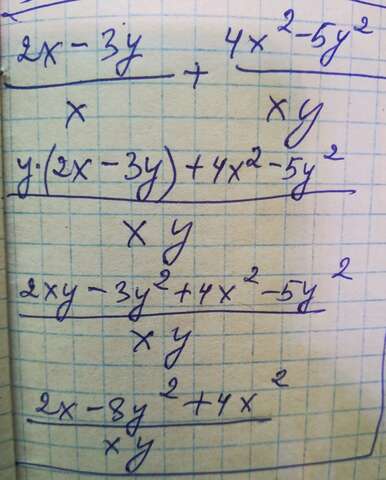 2x - 3y / x + 4x² - 5y² / xy
y·(2x - 3y) + 4x² - 5y² / xy
2xy - 3y² + 4x² - 5y² / xy
2x - 8y² + 4x² / xy